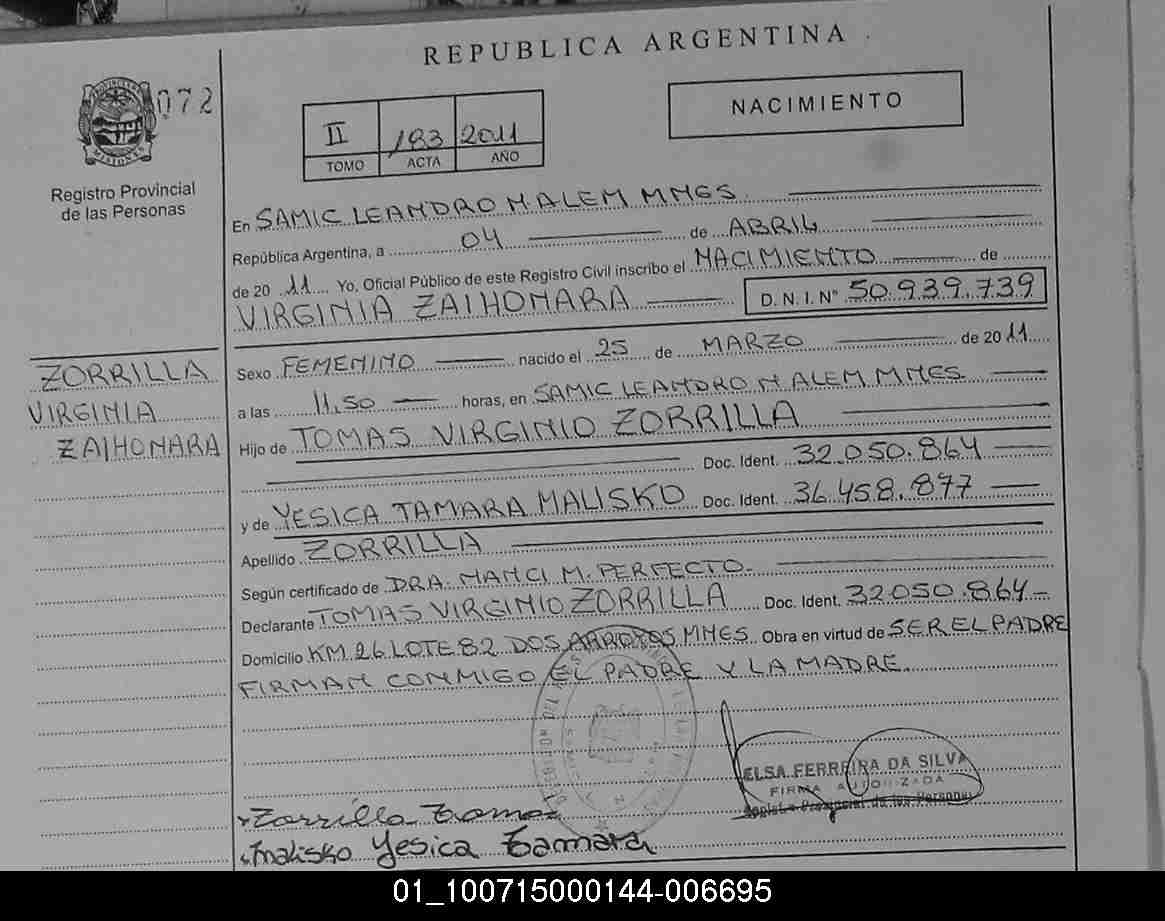 REPUBLICA ARGENTINA
072
PROVINCIA
MISIONES
Registro Provincial
de las Personas
II 183 2011
TOMO ACTA AÑO
NACIMIENTO
En SAMIC LEANDRO N ALEM MNES.
República Argentina, a 04 de ABRIL
de 20 11 Yo, Oficial Público de este Registro Civil inscribo el NACIMIENTO de
VIRGINIA ZAIHONARA D. N. I. N° 50.939.739
Sexo FEMENINO nacido el 25 de MARZO de 20 11
a las 11,50 horas, en SAMIC LEANDRO N ALEM MNES
Hijo de TOMAS VIRGINIO ZORRILLA
Doc. Ident. 32.050.864
y de YESICA TAMARA MALISKO Doc. Ident. 36.458.877
Apellido ZORRILLA
Según certificado de DRA. NANCI M. PERFECTO.
Declarante TOMAS VIRGINIO ZORRILLA Doc. Ident. 32050.864
Domicilio KM 26 LOTE 82 DOS ARROYOS MNES. Obra en virtud de SER EL PADRE
FIRMAN CONMIGO EL PADRE Y LA MADRE.
ZORRILLA
VIRGINIA
ZAIHONARA
ELSA FERREIRA DA SILVA
FIRMA AUTORIZADA
Provincial de las Personas
Zorrilla Tomas
Malisko Yesica Tamara
01_100715000144-006695